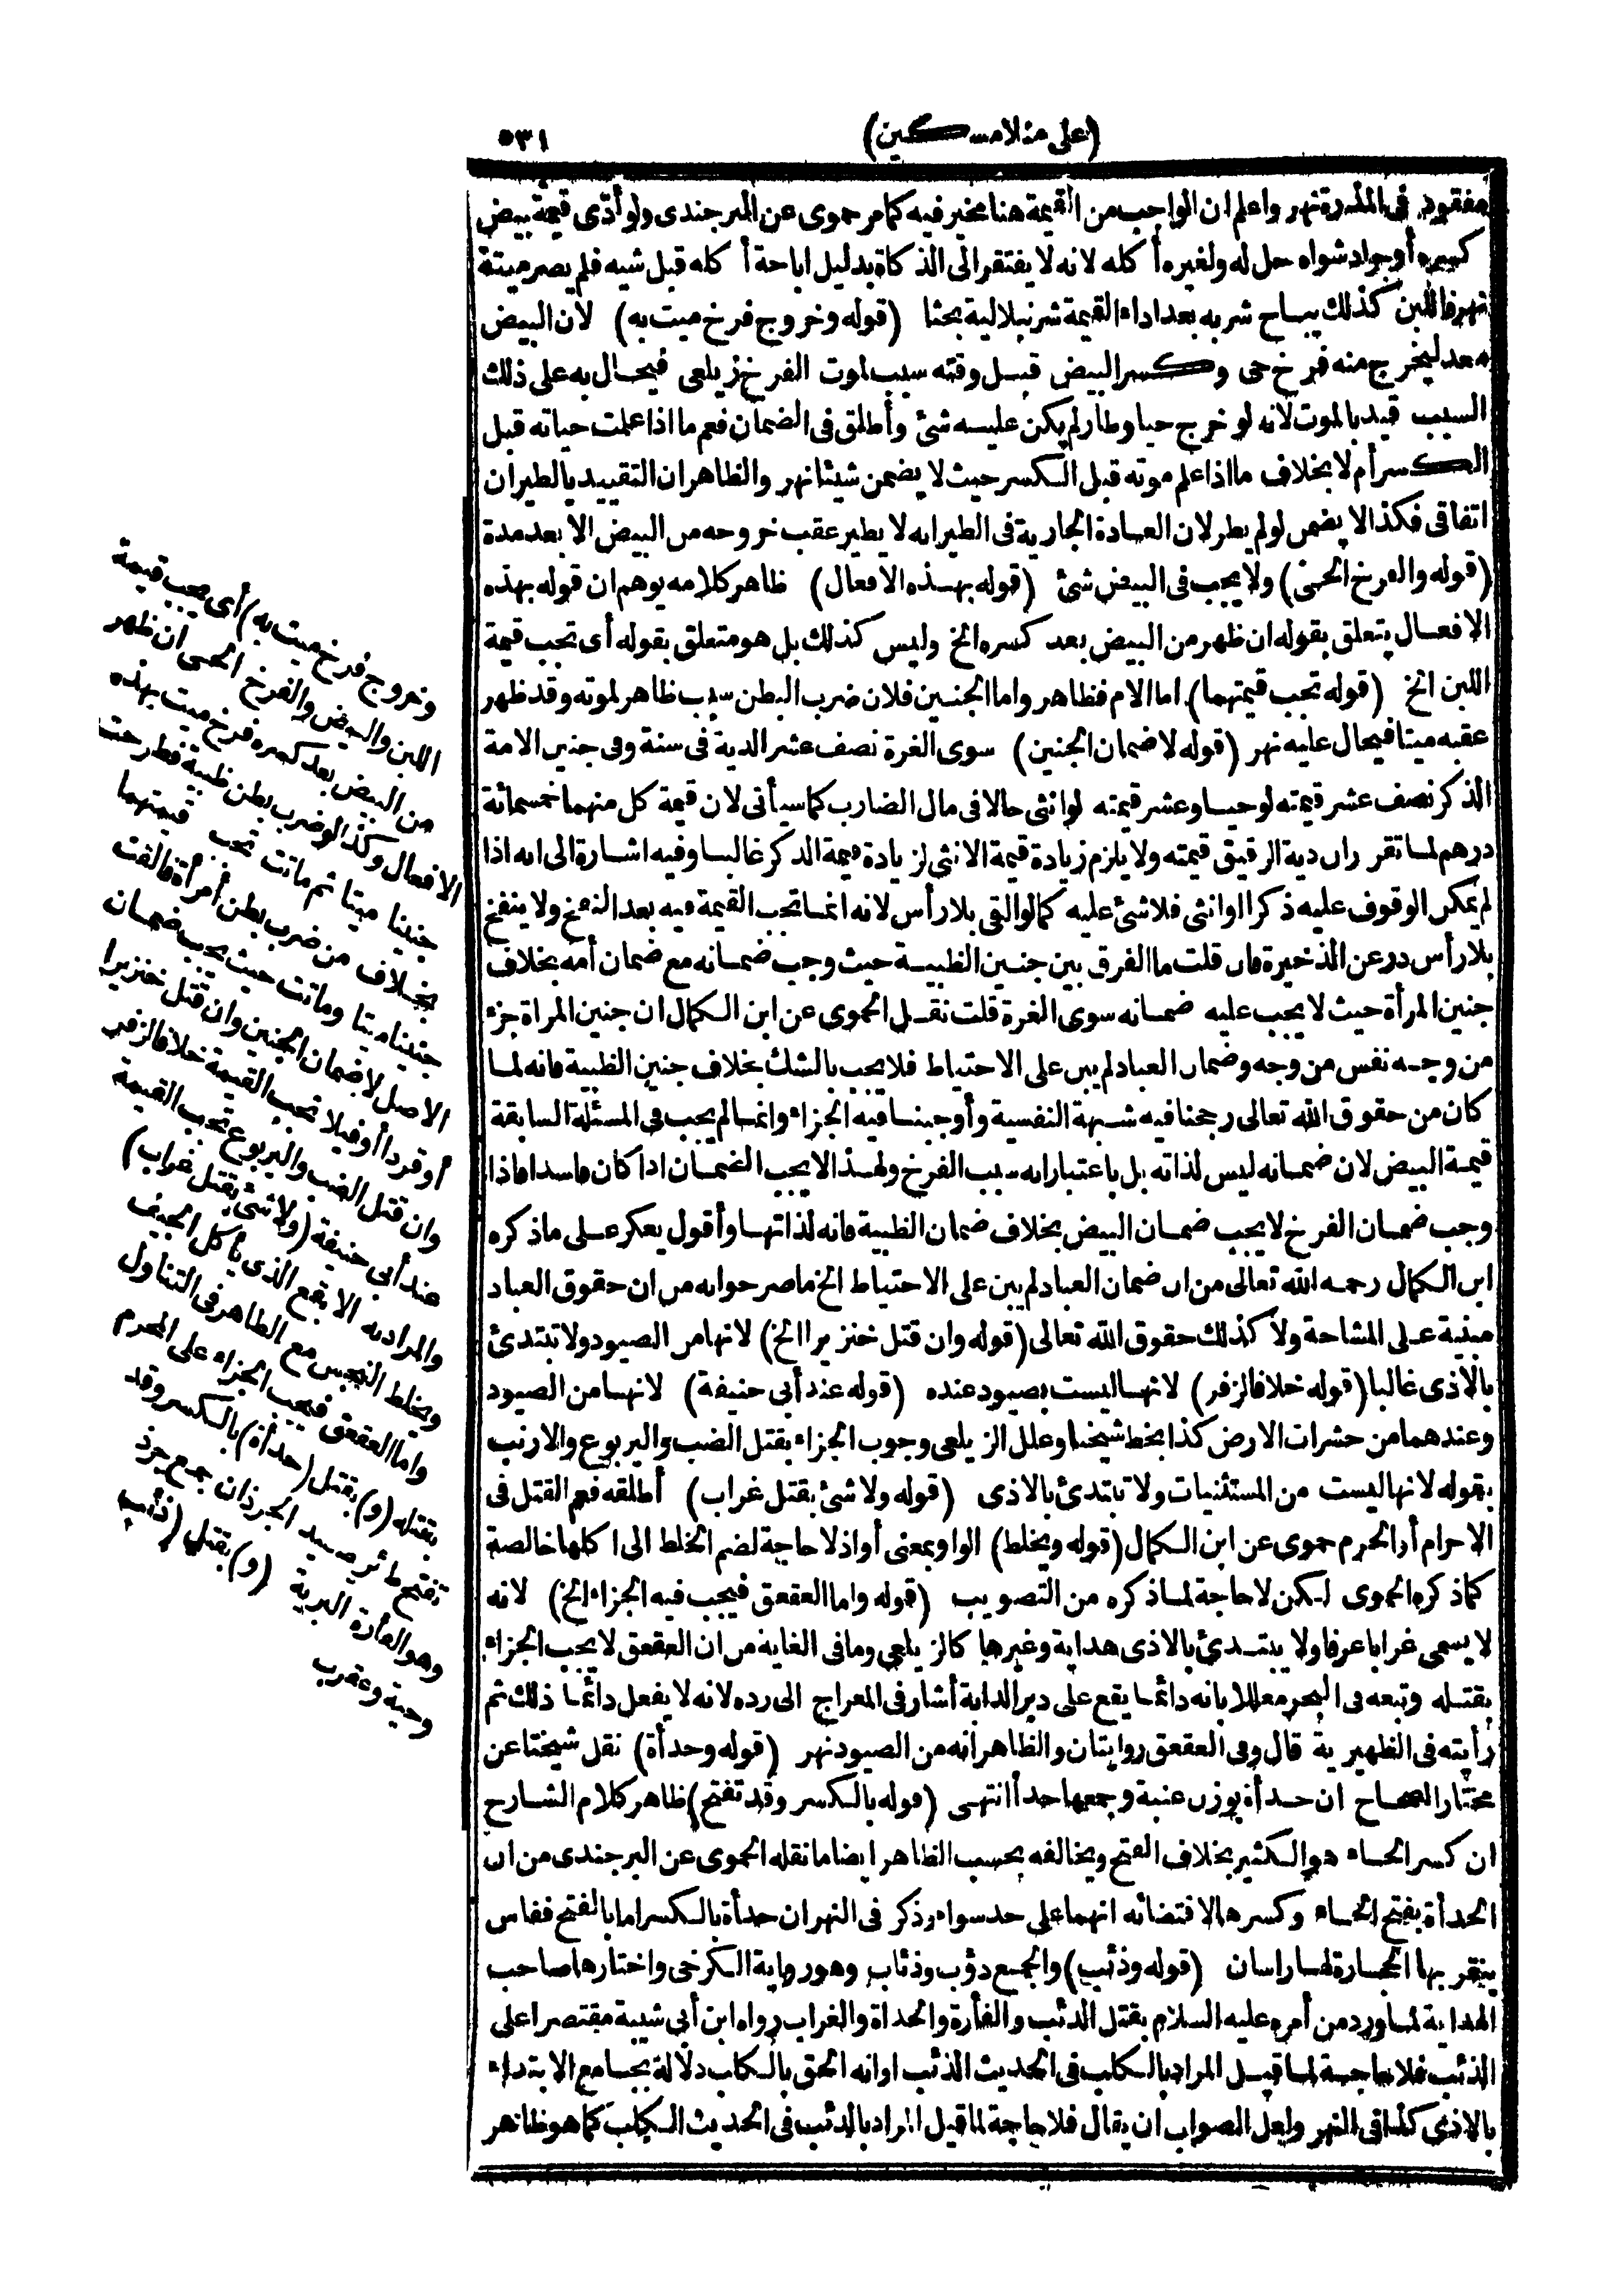 (على منلا مسكين)
٥٣١
مفقود في المذرة نهر واعلم ان الواجب من القيمة هنا مخير فيه كما مر حموى عن البرجندى ولو أدّى قيمة بيض
كسره أو جراد شواه حل له ولغيره أكله لانه لا يفتقر الى الذكاة بدليل اباحة أكله قبل شيه فلم يصر ميتة
نهر فاللبن كذلك يباح شربه بعد اداء القيمة شرنبلالية بحثا (قوله وخروج فرخ ميت به) لان البيض
معد ليخرج منه فرخ حى وكسر البيض قبل وقته سبب لموت الفرخ زيلعى فيحال به على ذلك
السبب قيد بالموت لانه لو خرج حيا وطار لم يكن عليه شئ وأطلق فى الضمان فعم ما اذا علمت حياته قبل
الكسر أم لا بخلاف ما اذا علم موته قبل الكسر حيث لا يضمن شيئا نهر والظاهر ان التقييد بالطيران
اتفاقى فكذا لا يضمن لو لم يطر لان العادة الجارية فى الطير انه لا يطير عقب خروجه من البيض الا بعد مدة
(قوله والفرخ الحى) ولا يجب فى البيض شئ (قوله بهذه الافعال) ظاهر كلامه يوهم ان قوله بهذه
الافعال يتعلق بقوله ان ظهر من البيض بعد كسره الخ وليس كذلك بل هو متعلق بقوله أى تجب قيمة
اللبن الخ (قوله تجب قيمتهما) اما الام فظاهر واما الجنين فلان ضرب البطن سبب ظاهر لموته وقد ظهر
عقبه ميتا فيحال عليه نهر (قوله لا ضمان الجنين) سوى الغرة نصف عشر الدية فى سنة وفى جنين الامة
الذكر نصف عشر قيمته لو حيا وعشر قيمته لو انثى حالا فى مال الضارب كما سيأتى لان قيمة كل منهما خمسمائة
درهم لما تقرر ان دية الرقيق قيمته ولا يلزم زيادة قيمة الانثى لزيادة قيمة الذكر غالبا وفيه اشارة الى انه اذا
لم يمكن الوقوف عليه ذكرا او انثى فلا شئ عليه كما لو القى بلا رأس لانه انما تجب القيمة فيه بعد النفخ ولا ينفخ
بلا رأس در عن الذخيرة فان قلت ما الفرق بين جنين الظبية حيث وجب ضمانه مع ضمان أمه بخلاف
جنين المرأة حيث لا يجب عليه ضمانه سوى الغرة قلت نقل الحموى عن ابن الكمال ان جنين المراة جزء
من وجه نفس من وجه وضمان العباد لم يبن على الاحتياط فلا يجب بالشك بخلاف جنين الظبية فانه لما
كان من حقوق الله تعالى رجحنا فيه شبهة النفسية وأوجبنا فيه الجزاء وانما لم يجب فى المسئلة السابقة
قيمة البيض لان ضمانه ليس لذاته بل باعتبار انه سبب الفرخ ولهذا لا يجب الضمان اذا كان فاسدا فاذا
وجب ضمان الفرخ لا يجب ضمان البيض بخلاف ضمان الظبية فانه لذاتها وأقول يعكر على ما ذكره
ابن الكمال رحمه الله تعالى من ان ضمان العباد لم يبن على الاحتياط الخ ما صرحوا به من ان حقوق العباد
مبنية على المشاحة ولا كذلك حقوق الله تعالى (قوله وان قتل خنزيرا الخ) لانها من الصيود ولا تبتدئ
بالاذى غالبا (قوله خلافا لزفر) لانها ليست بصيود عنده (قوله عند أبى حنيفة) لانها من الصيود
وعندهما من حشرات الارض كذا بخط شيخنا وعلل الزيلعى وجوب الجزاء بقتل الضب واليربوع والارنب
بقوله لانها ليست من المستثنيات ولا تبتدئ بالاذى (قوله ولا شئ بقتل غراب) أطلقه فعم القتل فى
الاحرام أو الحرم حموى عن ابن الكمال (قوله ويخلط) الواو بمعنى أو اذ لا حاجة لضم الخلط الى اكلها خالصة
كما ذكره الحموى لكن لا حاجة لما ذكره من التصويب (قوله واما العقعق فيجب فيه الجزاء الخ) لانه
لا يسمى غرابا عرفا ولا يبتدئ بالاذى هداية وغيرها كالزيلعى وما فى الغاية من ان العقعق لا يجب الجزاء
بقتله وتبعه فى البحر معللا بانه دائما يقع على دبر الدابة أشار فى المعراج الى رده لانه لا يفعل دائما ذلك ثم
رأيته فى الظهيرية قال وفى العقعق روايتان والظاهر أنه من الصيود نهر (قوله وحدأة) نقل شيخنا عن
مختار الصحاح ان حدأة بوزن عنبة وجمعها حدأ انتهى (قوله بالكسر وقد تفتح) ظاهر كلام الشارح
ان كسر الحاء هو الكثير بخلاف الفتح ويخالفه بحسب الظاهر ايضا ما نقله الحموى عن البرجندى من ان
الحدأة بفتح الحاء وكسرها لاقتضائه انهما على حد سواء وذكر فى النهر ان حدأة بالكسر اما بالفتح ففاس
ينقر بها الحجارة لها راسان (قوله وذئب) والجمع ذؤب وذئاب وهو رواية الكرخى واختارها صاحب
الهداية لما ورد من أمره عليه السلام بقتل الذئب والفأرة والحداة والغراب رواه ابن أبى شيبة مقتصرا على
الذئب فلا حاجة لما قيل المراد بالكلب فى الحديث الذئب او انه الحق بالكلب دلالة بجامع الابتداء
بالاذى كما فى النهر ولعل الصواب ان يقال فلا حاجة لما قيل المراد بالذئب فى الحديث الكلب كما هو ظاهر
وخروج فرخ ميت به) أى يجب قيمة
اللبن والبيض والفرخ الحى ان ظهر
من البيض بعد كسره فرخ ميت بهذه
الافعال وكذا لو ضرب بطن ظبية فطرحت
جنينا ميتا ثم ماتت تجب قيمتهما
بخلاف من ضرب بطن أمرأة فالقت
جنينا ميتا وماتت حيث يجب ضمان
الاصل لا ضمان الجنين وان قتل خنزيرا
أو قردا أو فيلا تجب القيمة خلافا لزفر
وان قتل الضب واليربوع تجب القيمة
عند أبى حنيفة (ولا شئ بقتل غراب)
والمراد به الابقع الذى يأكل الجيف
ويخلط النجس مع الطاهر فى التناول
واما العقعق فيجب الجزاء على المحرم
بقتله (و) بقتل (حدأة) بالكسر وقد
تفتح طائر يصيد الجرذان جمع جرذ
وهو الفأرة البرية (و) بقتل (ذئب
وحية وعقرب